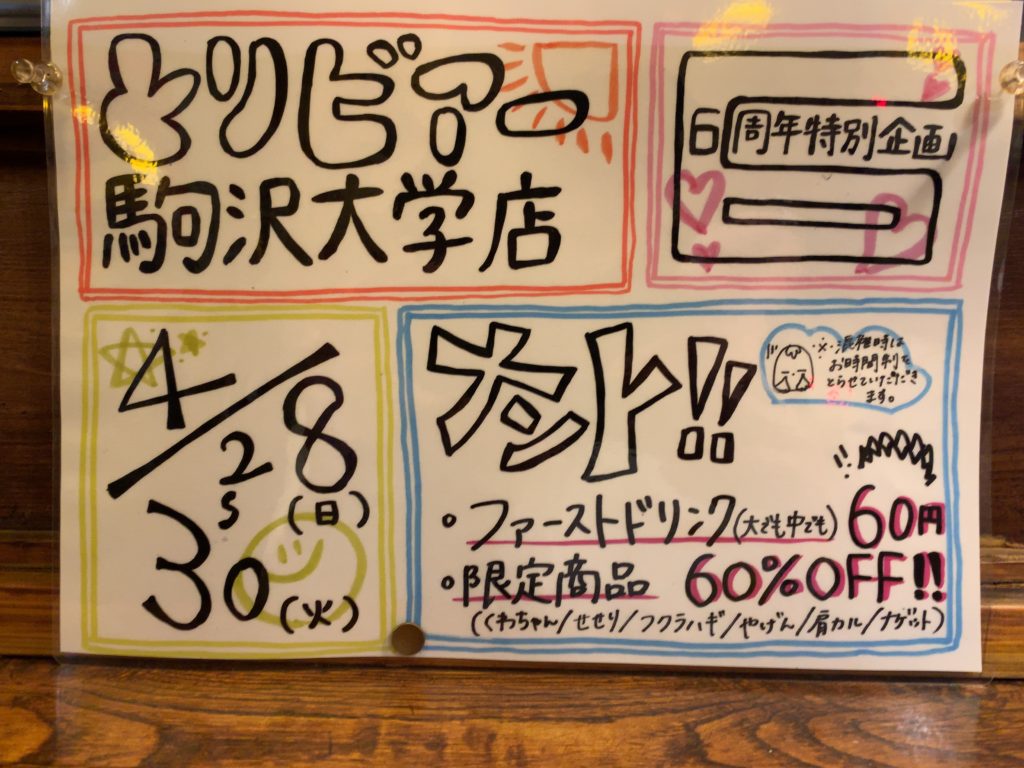 とりビアー
駒沢大学店
6周年特別企画
4/28(日)
〜
30(火)
ナント!!
※混雑時は
お時間制を
とらせていただき
ます。
・ファーストドリンク(大でも中でも) 60円
・限定商品 60%OFF!!
(くわちゃん/せせり/フクラハギ/やげん/肩カル/ナゲット)